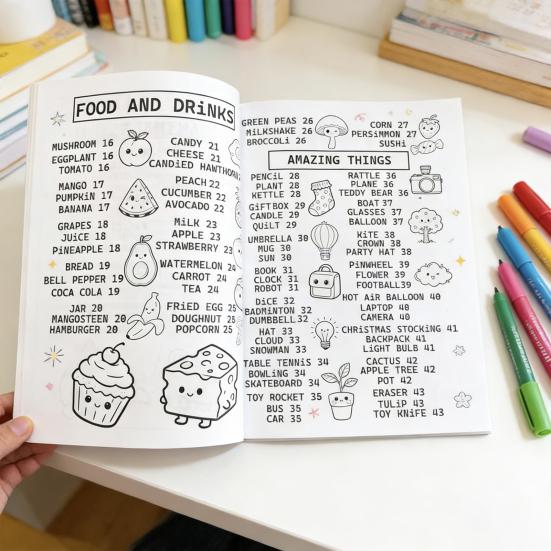 FOOD AND DRiNKS
MUSHROOM 16
EGGPLANT 16
TOMATO 16
MANGO 17
PUMPKiN 17
BANANA 17
GRAPES 18
JUiCE 18
PiNEAPPLE 18
BREAD 19
BELL PEPPER 19
COCA COLA 19
JAR 20
MANGOSTEEN 20
HAMBURGER 20
CANDY 21
CHEESE 21
CANDiED HAWTHORN
PEACH 22
CUCUMBER 22
AVOCADO 22
MiLK 23
APPLE 23
STRAWBERRY 23
WATERMELON 24
CARROT 24
TEA 24
FRiED EGG 25
DOUGHNUT 25
POPCORN 25
GREEN PEAS 26
MiLKSHAKE 26
BROCCOLi 26
CORN 27
PERSiMMON 27
SUSHi
AMAZING THINGS
PENCiL 28
PLANT 28
KETTLE 28
GiFTBOX 29
CANDLE 29
QUiLT 29
UMBRELLA 30
MUG 30
SUN 30
BOOK 31
CLOCK 31
ROBOT 31
DiCE 32
BADMiNTON 32
DUMBBELL 32
HAT 33
CLOUD 33
SNOWMAN 33
TABLE TENNiS 34
BOWLiNG 34
SKATEBOARD 34
TOY ROCKET 35
BUS 35
CAR 35
RATTLE 36
PLANE 36
TEDDY BEAR 36
BOAT 37
GLASSES 37
BALLOON 37
KiTE 38
CROWN 38
PARTY HAT 38
PiNWHEEL 39
FLOWER 39
FOOTBALL 39
HOT AiR BALLOON 40
LAPTOP 40
CAMERA 40
CHRiSTMAS STOCKiNG 41
BACKPACK 41
LiGHT BULB 41
CACTUS 42
APPLE TREE 42
POT 42
ERASER 43
TULiP 43
TOY KNiFE 43